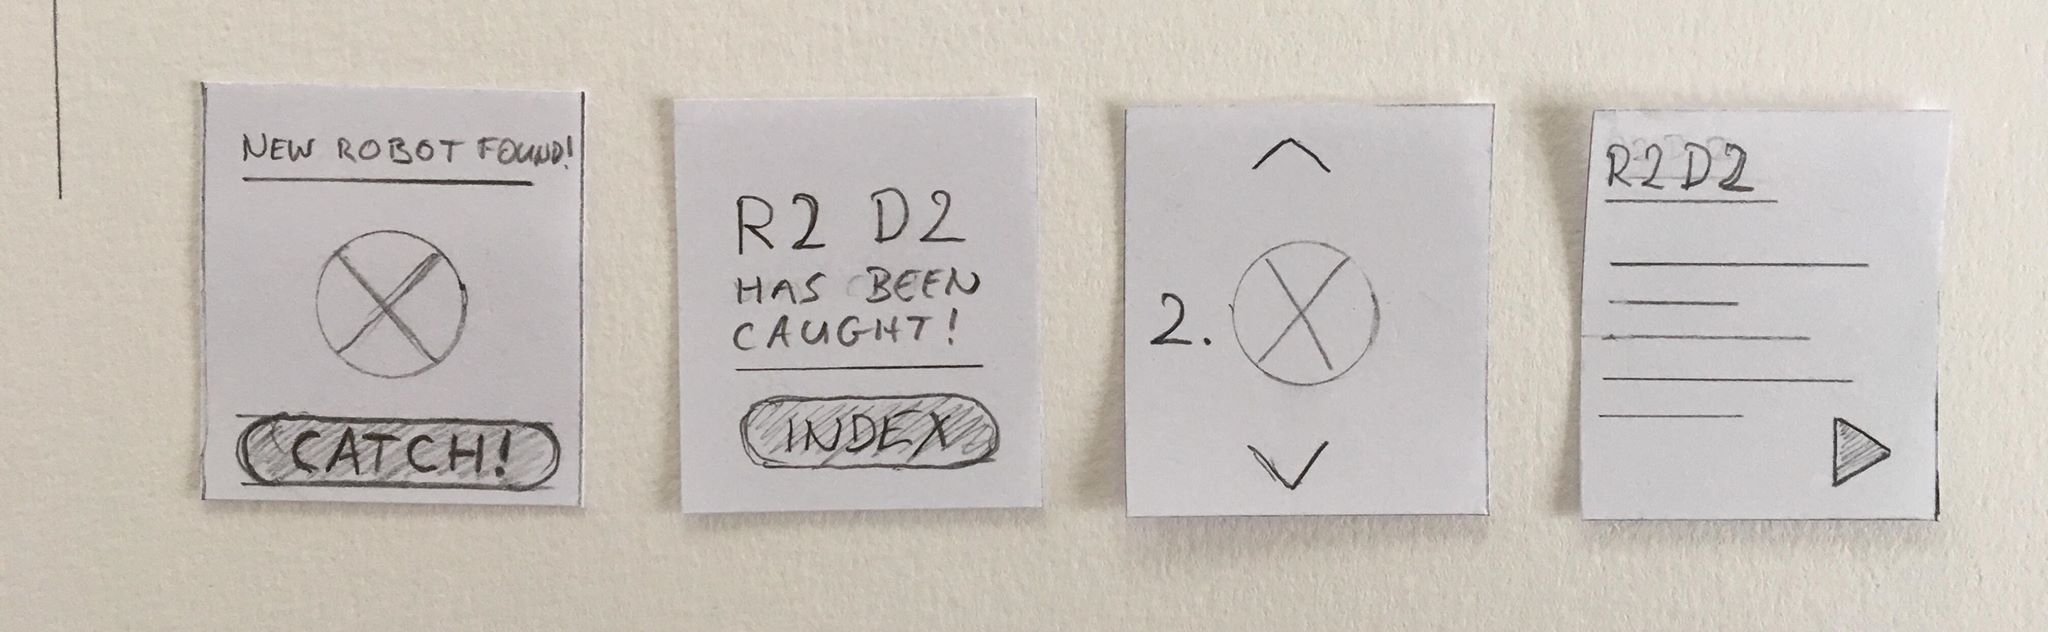 NEW ROBOT FOUND!
CATCH!
R2 D2
HAS BEEN
CAUGHT!
INDEX
2.
R2D2